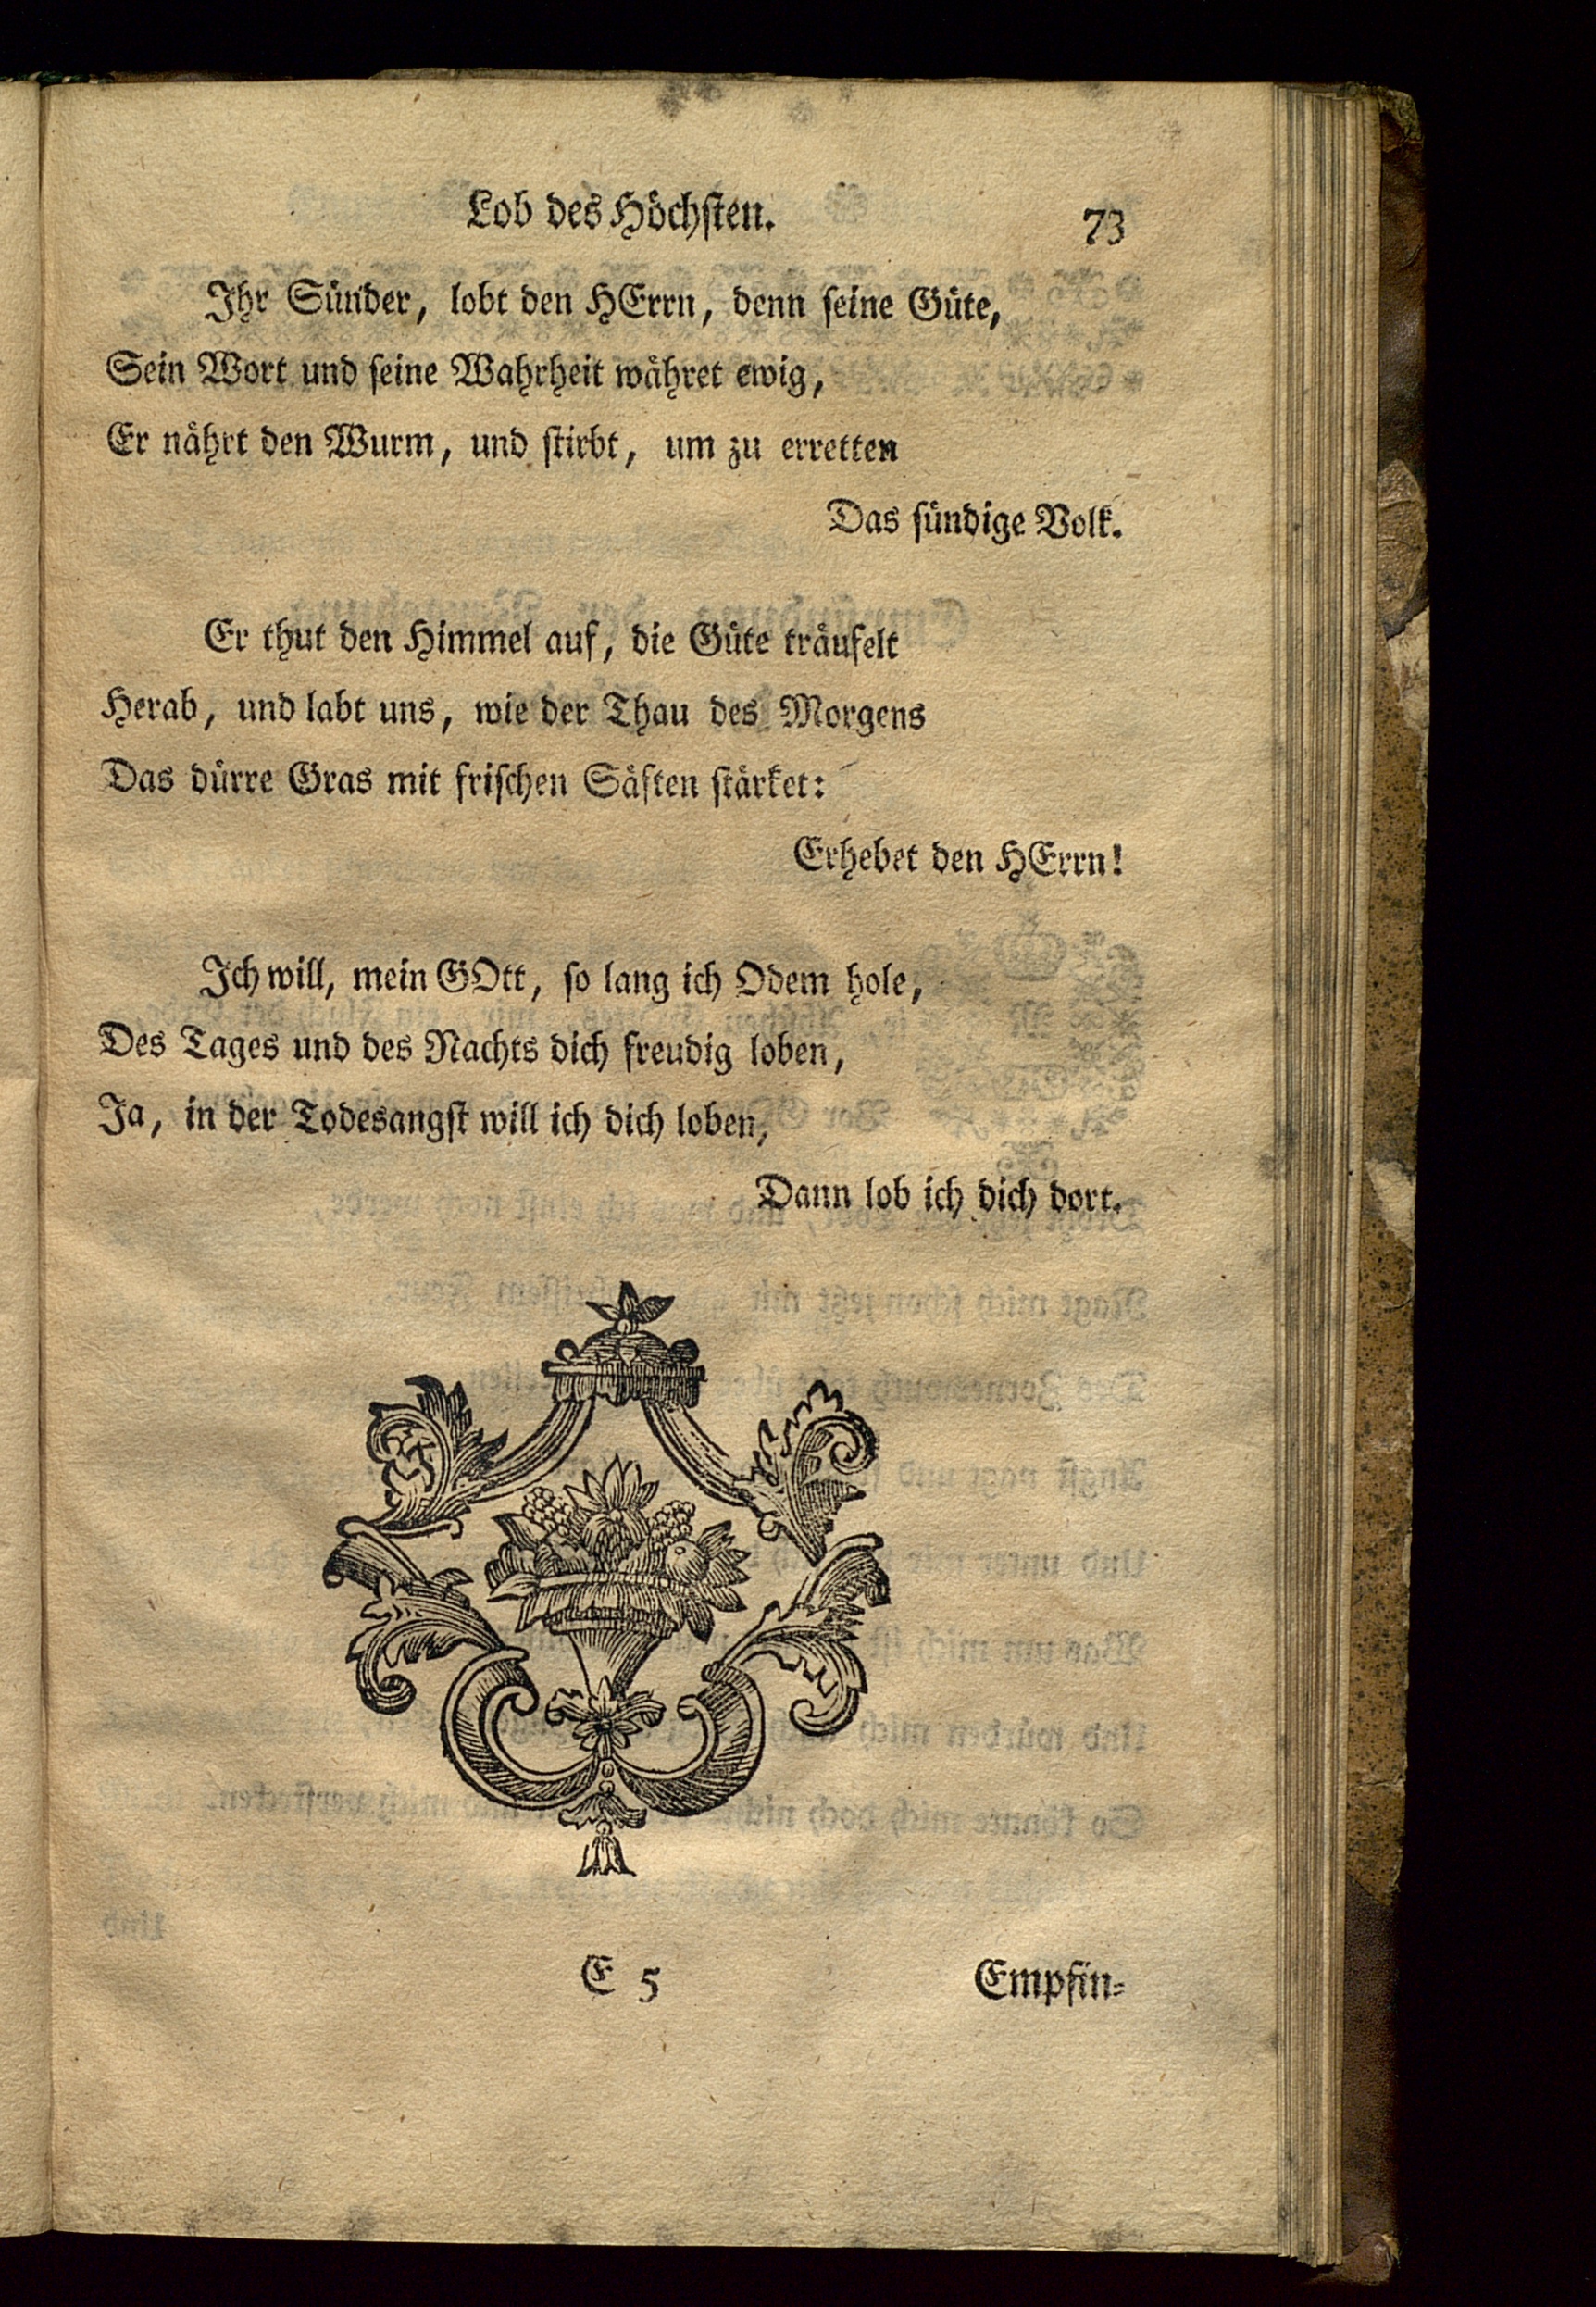 Lob des Höchsten. 73
Ihr Sünder, lobt den HErrn, denn seine Güte,
Sein Wort und seine Wahrheit währet ewig,
Er nährt den Wurm, und stirbt, um zu erretten
Das sündige Volk.
Er thut den Himmel auf, die Güte träufelt
Herab, und labt uns, wie der Thau des Morgens
Das dürre Gras mit frischen Säften stärket:
Erhebet den HErrn!
Ich will, mein GOtt, so lang ich Odem hole,
Des Tages und des Nachts dich freudig loben,
Ja, in der Todesangst will ich dich loben,
Dann lob ich dich dort.
E 5 Empfin-